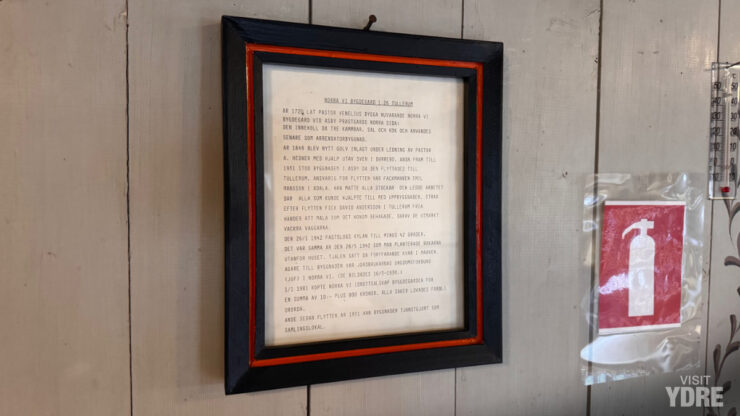 NORRA VI BYGDEGÅRD I DK TULLERUM
ÅR 1770 LÄT PASTOR VENELIUS BYGGA NUVARANDE NORRA VI
BYGDEGÅRD VID ASBY PRÄSTGÅRDS NORRA SIDA.
DEN INNEHÖLL DÅ TRE KAMMRAR, SAL OCH KÖK OCH ANVÄNDES
SENARE SOM ARRENDATORBYGGNAD.
ÅR 1848 BLEV NYTT GOLV INLAGT UNDER LEDNING AV PASTOR
A. MEDNER MED HJÄLP UTAV SVEN I DURREMO. ÄNDA FRAM TILL
1931 STOD BYGGNADEN I ASBY DÅ DEN FLYTTADES TILL
TULLERUM. ANSVARIG FÖR FLYTTEN VAR FACKMANNEN EMIL
MÅNSSON I BOALA. HAN MÄTTE ALLA STOCKAR OCH LEDDE ARBETET
DÄR ALLA SOM KUNDE HJÄLPTE TILL MED UPPBYGGNADEN.
EFTER FLYTTEN FICK DAVID ANDERSSON I TULLERUM FRIA
HÄNDER ATT MÅLA SOM DET HONOM BEHAGADE, DÄRAV DE UTMÄRKT
VACKRA VÄGGARNA.
DEN 26/1 1942 FASTSLOGS KYLAN TILL MINUS 42 GRADER.
DET VAR SAMMA ÅR DEN 28/5 1942 SOM MAN PLANTERADE BJÖRKARNA
UTANFÖR HUSET. TJÄLEN SATT DÅ FORTFARANDE KVAR I BACKEN.
ÄGARE TILL BYGGNADEN VAR JORDBRUKARNAS UNGDOMSFÖRBUND
(JUF) I NORRA VI.
1/1 1981 KÖPTE NORRA VI IDROTTSKLUBB BYGDEGÅRDEN FÖR
EN SUMMA AV 10:- PLUS 800 KRONOR.
ORÖRDA.
ÄNDA SEDAN FLYTTEN ÅR 1931 HAR BYGGNADEN TJÄNSTGJORT SOM
SAMLINGSLOKAL.
VISIT
YDRE